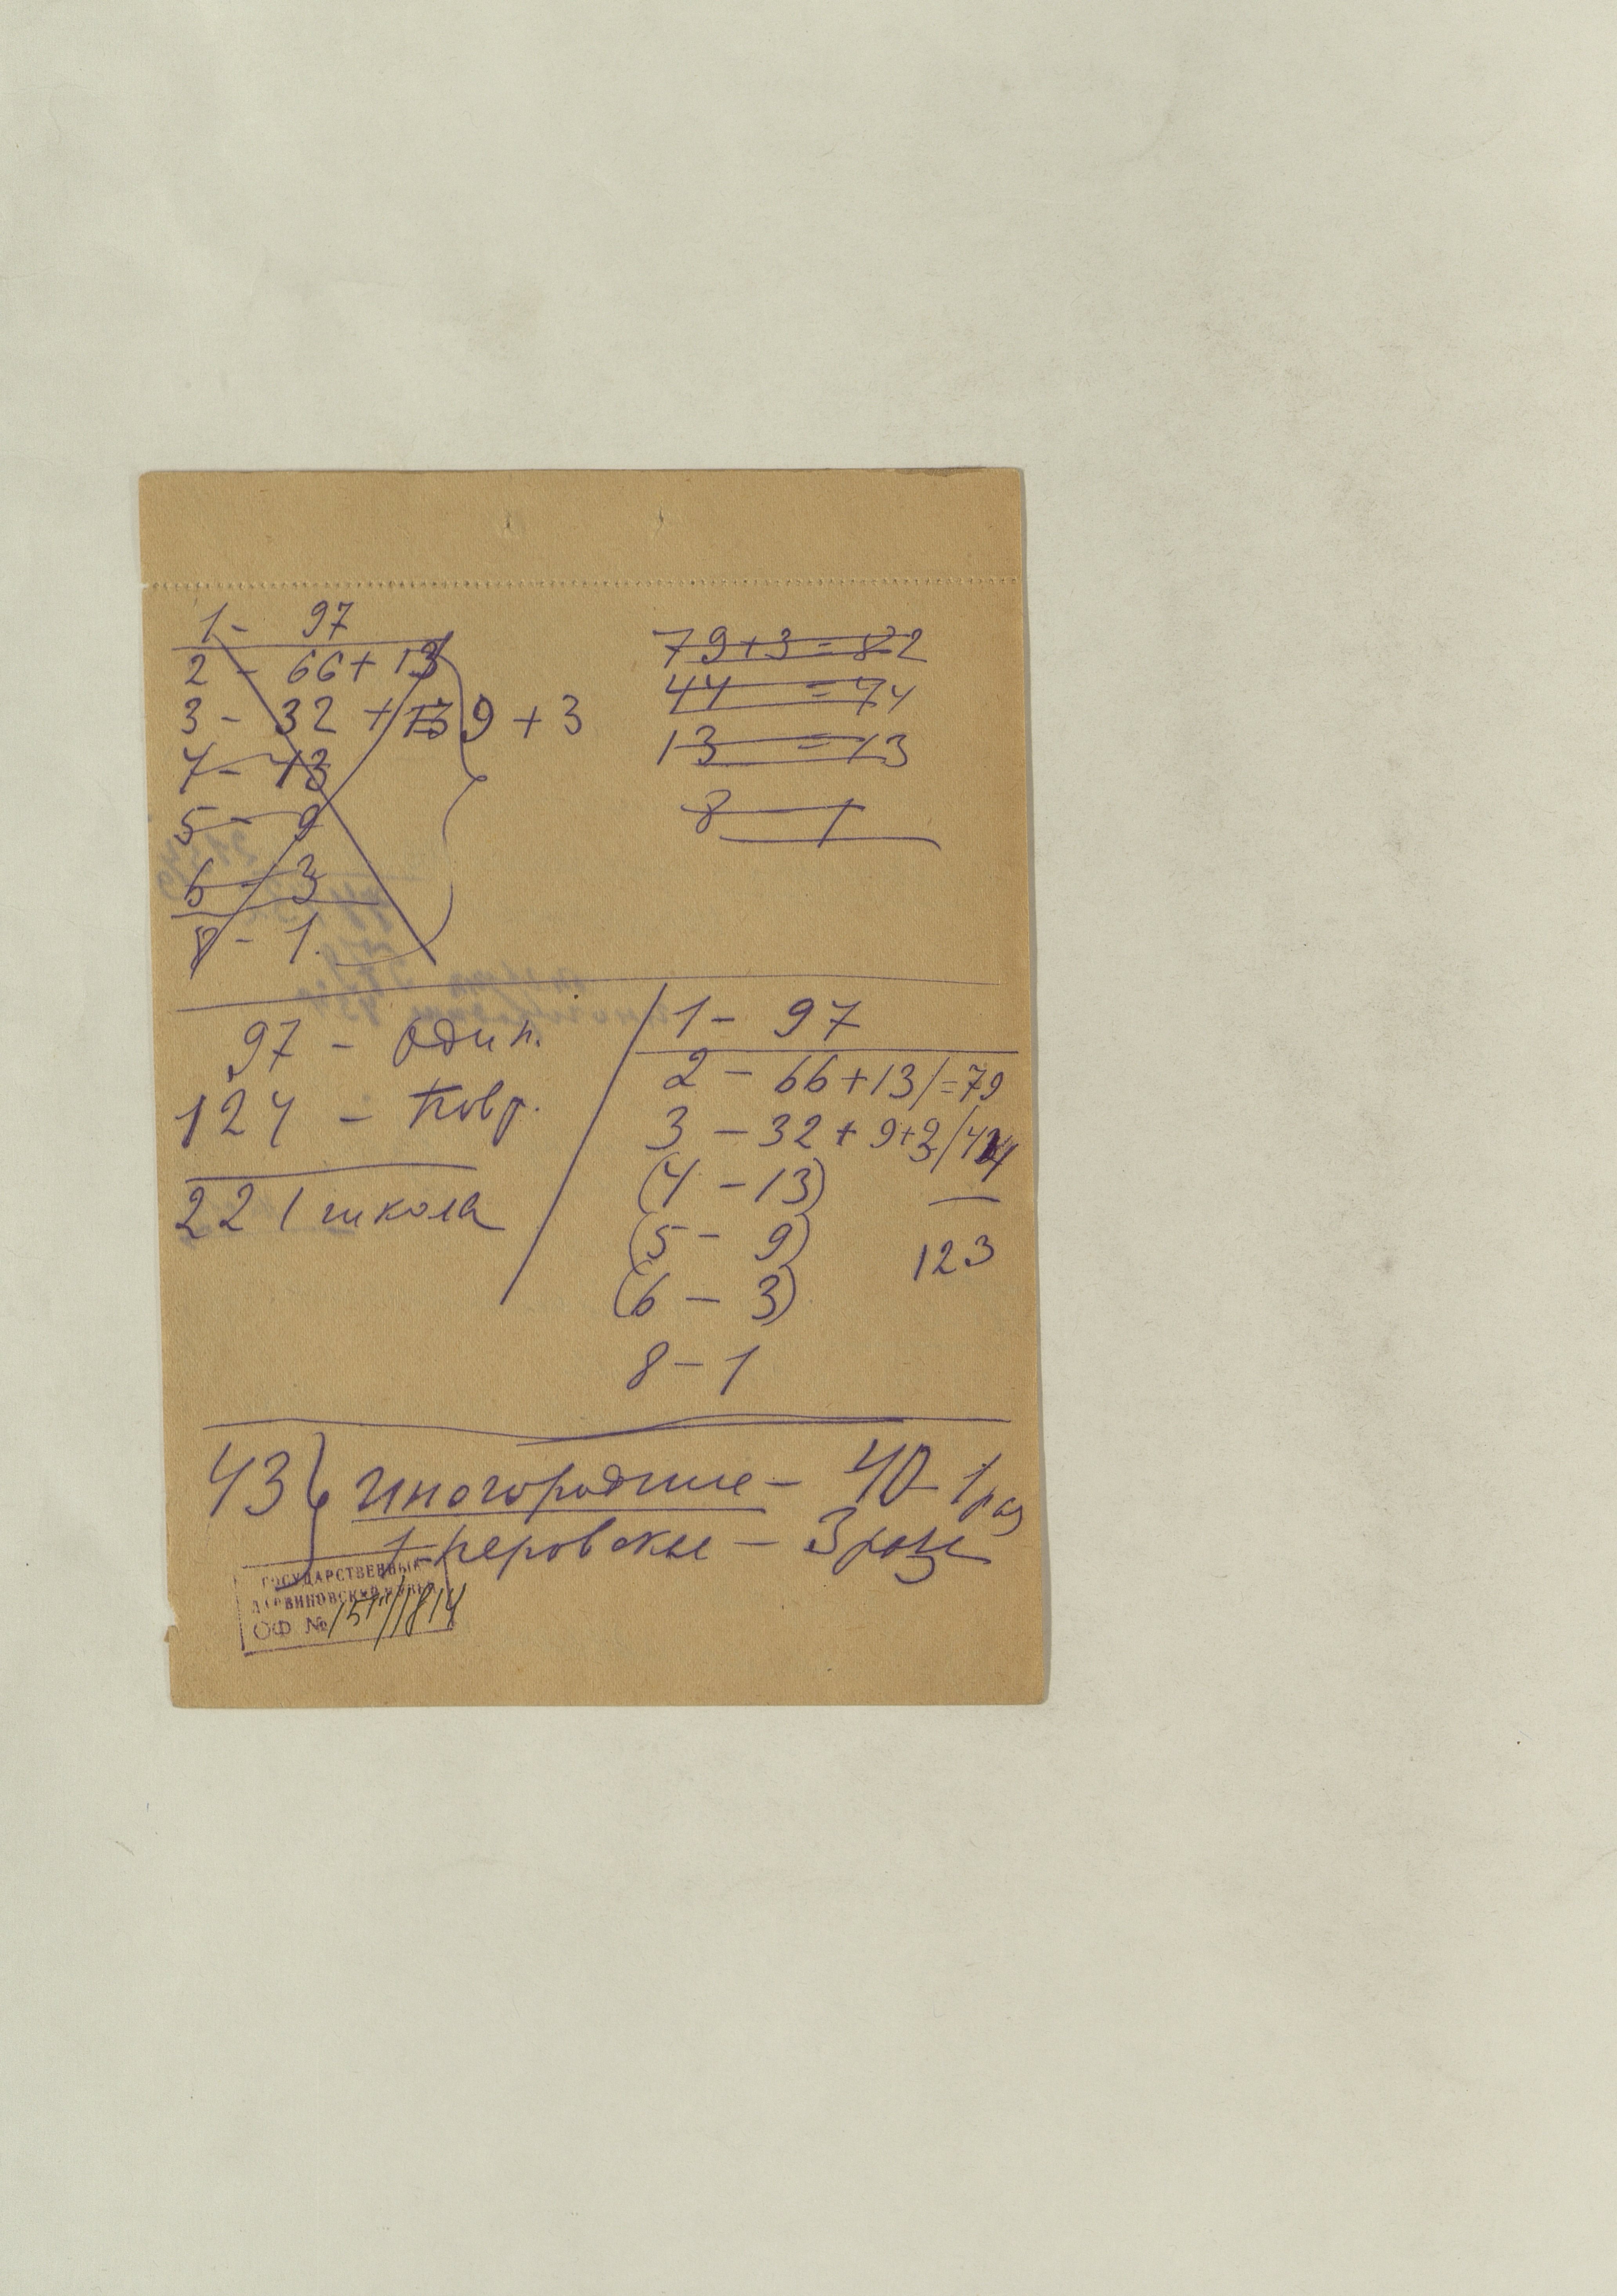 1 - 97
2 - 66 + 13
3 - 32 + 13 9 + 3
4 - 13
5 - 9
6 - 3
8 - 1
79 + 3 = 82
44 = 44
13 = 13
8 1
97 - один.
124 - повр.
221 школа
1 - 97
2 - 66 + 13 / = 79
3 - 32 + 9 + 3 / 44
(4 - 13)
(5 - 9)
(6 - 3)
123
8 - 1
43 } иногородние - 40 - 1 раз
- 3 раза
ГОСУДАРСТВЕННЫЙ
ДАРВИНОВСКИЙ МУЗЕЙ
ОФ №